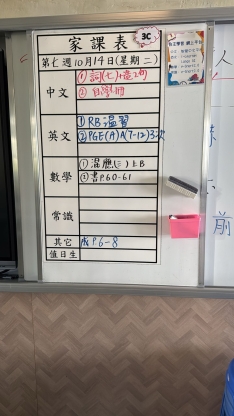 家課表
3C
第七週10月14日(星期二)
中文
①詞(七)+造句
②自學冊
英文
①RB温習
②PGE(A)A(7-12)3次
數學
①温應(三)上B
②書P.60-61
常識
其它
成P.6-8
值日生
前